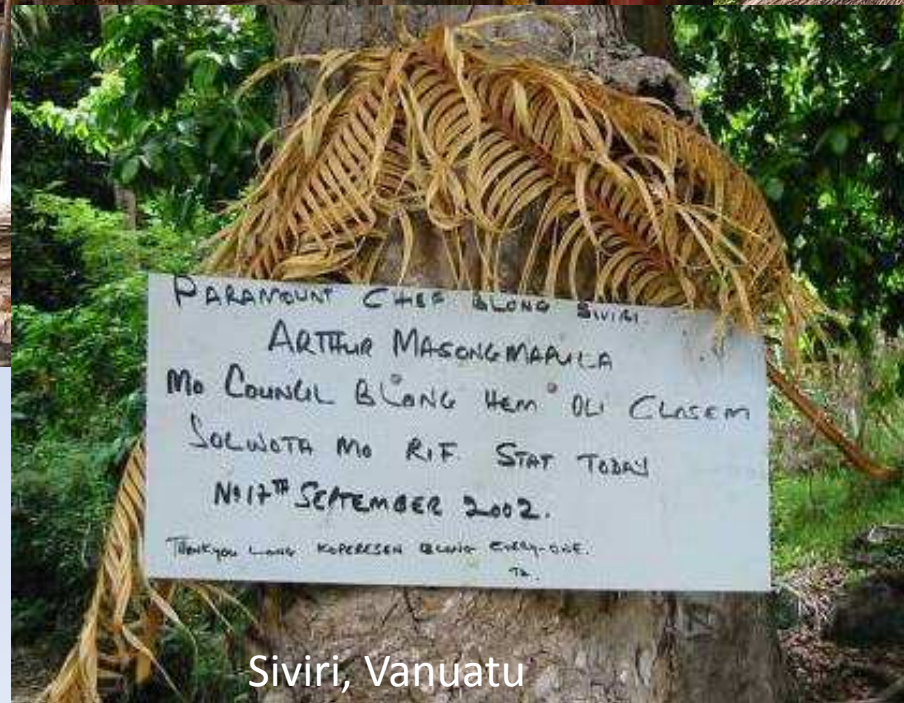 PARAMOUNT CHEF BLONG SIVIRI.
ARTHUR MASONGMAPULA
MO COUNCIL BLONG HEM OLI CLOSEM
SOLWOTA MO RIF STAT TODAY
No 17TH SEPTEMBER 2002.
THANKYOU LONG KOPERESEN BLONG EVERY-ONE.
Siviri, Vanuatu